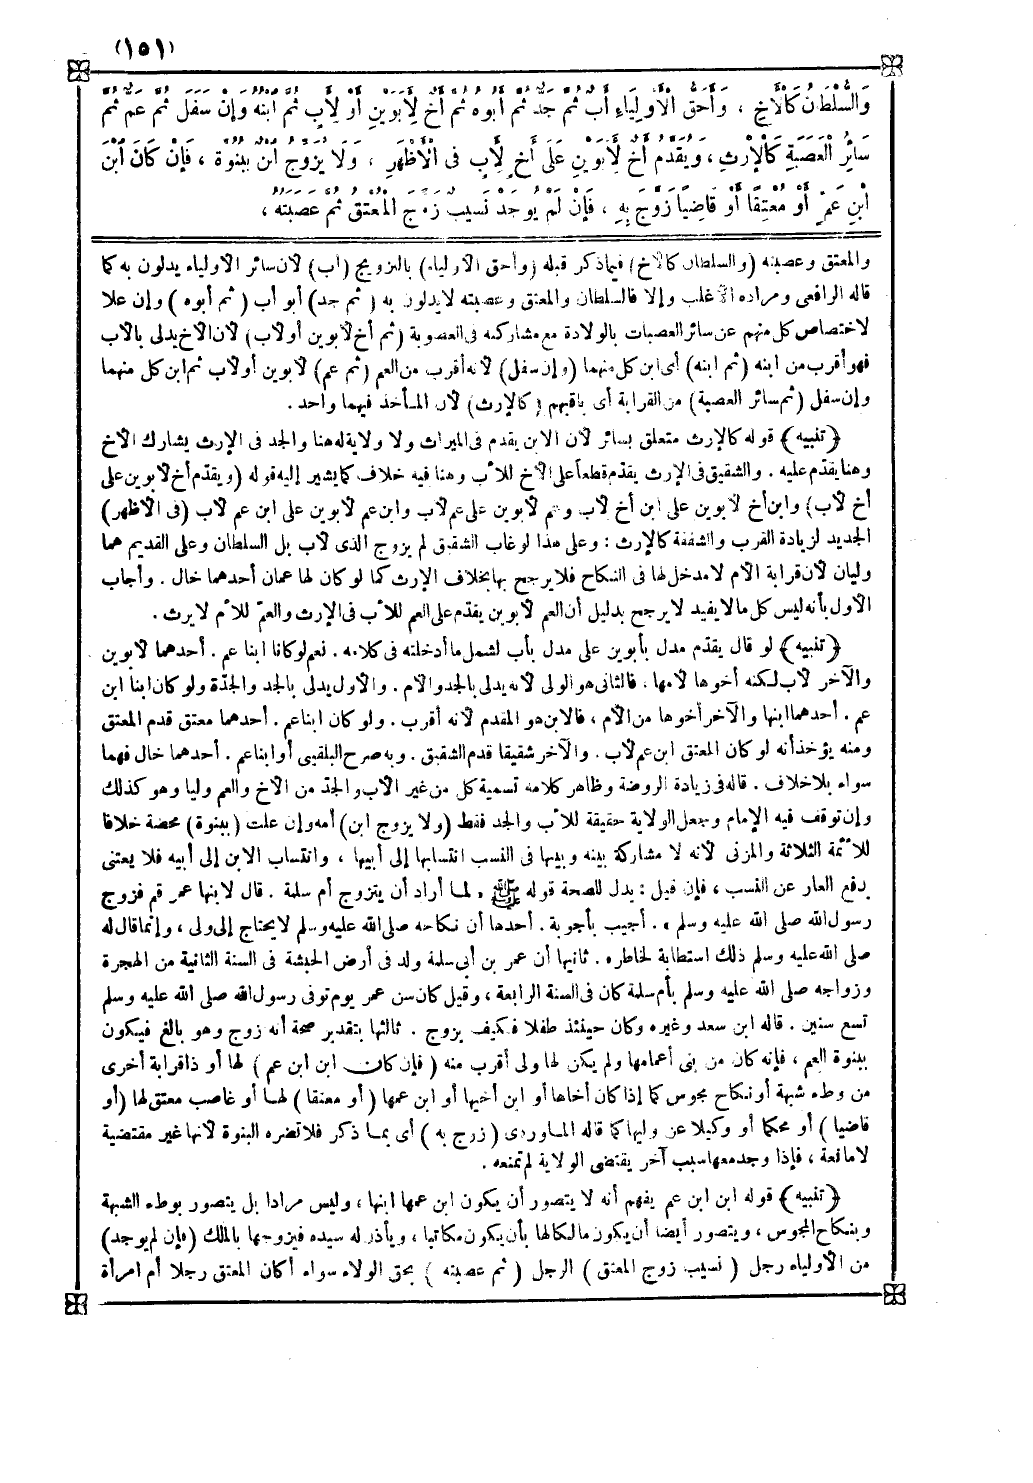 (١٥١)
وَالسُّلْطَانُ كَالْأَخِ ، وَأَحَقُّ الْأَوْلِيَاءِ أَبٌ ثُمَّ جَدٌّ ثُمَّ أَبُوهُ ثُمَّ أَخٌ لِأَبَوَيْنِ أَوْ لِأَبٍ ثُمَّ ابْنُهُ وَإِنْ سَفَلَ ثُمَّ عَمٌّ ثُمَّ
سَائِرُ الْعَصَبَةِ كَالْإِرْثِ ، وَيُقَدَّمُ أَخٌ لِأَبَوَيْنِ عَلَى أَخٍ لِأَبٍ فِى الْأَظْهَرِ ، وَلَا يُزَوِّجُ ابْنٌ بِبُنُوَّةٍ ، فَإِنْ كَانَ ابْنَ
ابْنِ عَمٍّ أَوْ مُعْتِقًا أَوْ قَاضِيًا زَوَّجَ بِهِ ، فَإِنْ لَمْ يُوجَدْ نَسِيبٌ زَوَّجَ الْمُعْتِقُ ثُمَّ عَصَبَتُهُ ،
والمعتق وعصبته (والسلطان كالأخ) فيما ذكر قبله (وأحق الأولياء) بالتزويج (أب) لأن سائر الأولياء يدلون به كما
قاله الرافعى ومراده الأغلب وإلا فالسلطان والمعتق وعصبته لا يدلون به (ثم جد) أبو أب (ثم أبوه) وإن علا
لاختصاص كل منهم عن سائر العصبات بالولادة مع مشاركته فى العصوبة (ثم أخ لأبوين أو لأب) لأن الأخ يدلى بالأب
فهو أقرب من ابنه (ثم ابنه) أى ابن كل منهما (وإن سفل) لأنه أقرب من العم (ثم عم) لأبوين أو لأب ثم ابن كل منهما
وإن سفل (ثم سائر العصبة) من القرابة أى باقيهم (كالإرث) لأن المأخذ فيهما واحد .
﴿تنبيه﴾ قوله كالإرث متعلق بسائر لأن الابن يقدم فى الميراث ولا ولاية له هنا والجد فى الإرث يشارك الأخ
وهنا يقدم عليه . والشقيق فى الإرث يقدم قطعا على الأخ للأب وهنا فيه خلاف كما يشير إليه قوله (ويقدم أخ لأبوين على
أخ لأب) وابن أخ لأبوين على ابن أخ لأب وعم لأبوين على عم لأب وابن عم لأبوين على ابن عم لأب (فى الأظهر)
الجديد لزيادة القرب والشفقة كالإرث : وعلى هذا لو غاب الشقيق لم يزوج الذى لأب بل السلطان وعلى القديم هما
وليان لأن قرابة الأم لا مدخل لها فى النكاح فلا يرجح بها بخلاف الإرث كما لو كان لها عمان أحدهما خال . وأجاب
الأول بأنه ليس كل ما لا يفيد لا يرجح بدليل أن العم لأبوين يقدم على العم للأب فى الإرث والعم للأم لا يرث .
﴿تنبيه﴾ لو قال يقدم مدل بأبوين على مدل بأب لشمل ما أدخلته فى كلامه . نعم لو كانا ابنا عم . أحدهما لأبوين
والآخر لأب لكنه أخوها لأمها . فالثانى هو الولى لأنه يدلى بالجد والأم . والأول يدلى بالجد والجدة ولو كان ابنا ابن
عم . أحدهما ابنها والآخر أخوها من الأم ، فالابن هو المقدم لأنه أقرب . ولو كان ابنا عم . أحدهما معتق قدم المعتق
ومنه يؤخذ أنه لو كان المعتق ابن عم لأب . والآخر شقيقا قدم الشقيق . وبه صرح البلقينى أو ابنا عم . أحدهما خال فهما
سواء بلا خلاف . قاله فى زيادة الروضة وظاهر كلامه تسمية كل من غير الأب والجد من الأخ والعم وليا وهو كذلك
وإن توقف فيه الإمام وجعل الولاية حقيقة للأب والجد فقط (ولا يزوج ابن) أمه وإن علت (ببنوة) محضة خلافا
للأئمة الثلاثة والمزنى لأنه لا مشاركة بينه وبينها فى النسب انتسابها إلى أبيها ، وانتساب الابن إلى أبيه فلا يعتنى
بدفع العار عن النسب ، فإن قيل : يدل للصحة قوله ﷺ « لما أراد أن يتزوج أم سلمة . قال لابنها عمر قم فزوج
رسول الله صلى الله عليه وسلم » . أجيب بأجوبة . أحدها أن نكاحه صلى الله عليه وسلم لا يحتاج إلى ولى ، وإنما قال له
صلى الله عليه وسلم ذلك استطابة لخاطره . ثانيها أن عمر بن أبى سلمة ولد فى أرض الحبشة فى السنة الثانية من الهجرة
وزواجه صلى الله عليه وسلم بأم سلمة كان فى السنة الرابعة ، وقيل كان سن عمر يوم توفى رسول الله صلى الله عليه وسلم
تسع سنين . قاله ابن سعد وغيره وكان حينئذ طفلا فكيف يزوج . ثالثها بتقدير صحة أنه زوج وهو بالغ فيكون
ببنوة العم ، فإنه كان من بنى أعمامها ولم يكن لها ولى أقرب منه (فإن كان ابن ابن عم) لها أو ذا قرابة أخرى
من وطء شبهة أو نكاح مجوس كما إذا كان أخاها أو ابن أخيها أو ابن عمها (أو معتقا) لها أو عاصب معتق لها (أو
قاضيا) أو محكما أو وكيلا عن وليها كما قاله الماوردى (زوج به) أى بما ذكر فلا تضره البنوة لأنها غير مقتضية
لا مانعة ، فإذا وجد معها سبب آخر يقتضى الولاية لم تمنعه .
﴿تنبيه﴾ قوله ابن ابن عم يفهم أنه لا يتصور أن يكون ابن عمها ابنها ، وليس مرادا بل يتصور بوطء الشبهة
وبنكاح المجوس ، ويتصور أيضا أن يكون مالكا لها بأن يكون مكاتبا ، ويأذن له سيده فيزوجها بالملك (فإن لم يوجد)
من الأولياء رجل (نسيب زوج المعتق) الرجل (ثم عصبته) بحق الولاء سواء أكان المعتق رجلا أم امرأة